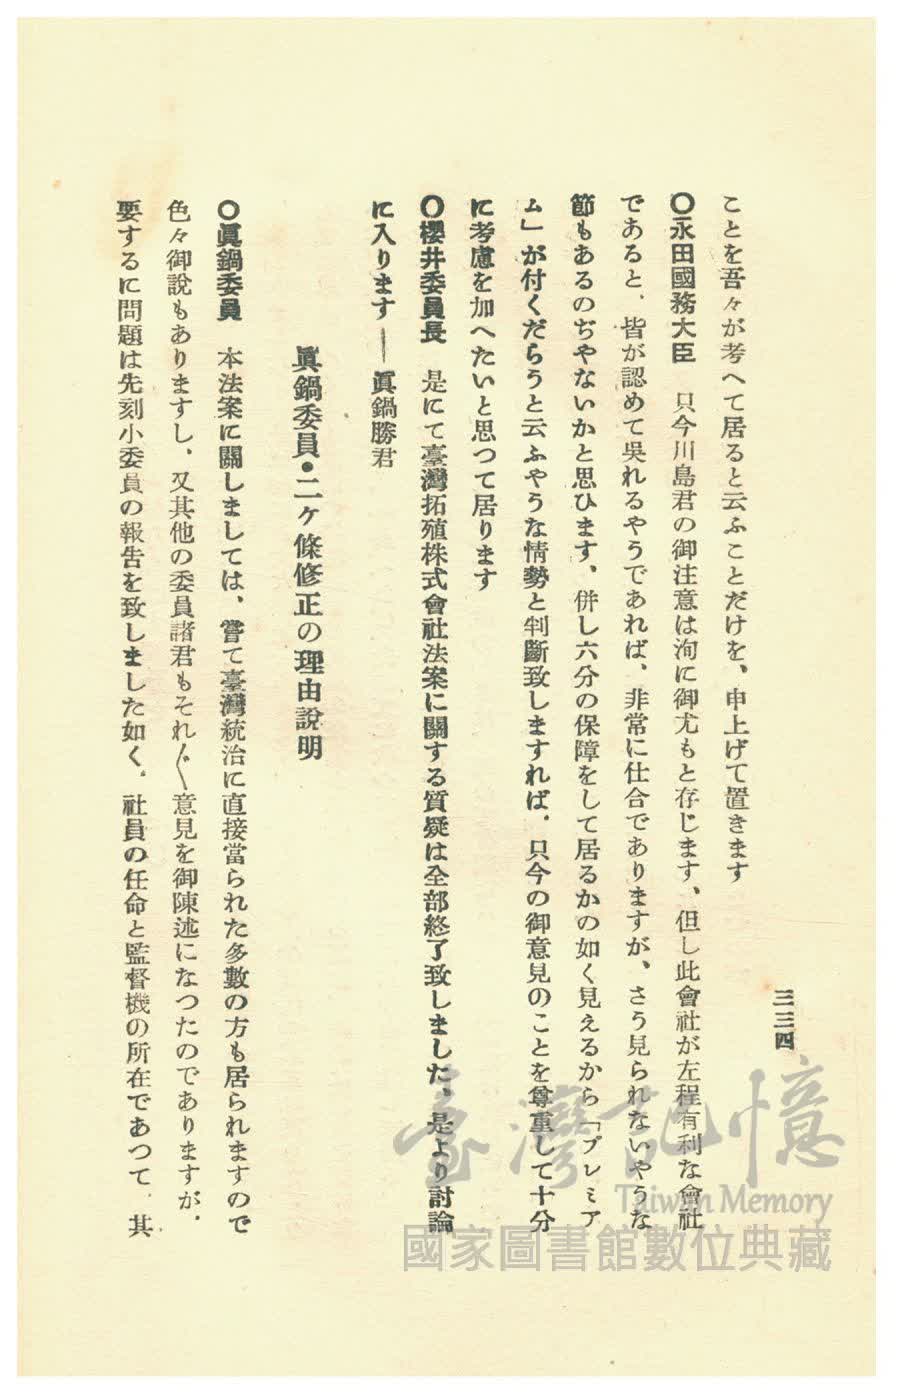 三三四
ことを吾々が考へて居ると云ふことだけを、申上げて置きます
〇永田國務大臣　只今川島君の御注意は洵に御尤もと存じます、但し此會社が左程有利な會社
であると、皆が認めて吳れるやうであれば、非常に仕合でありますが、さう見られないやうな
節もあるのぢやないかと思ひます、併し六分の保障をして居るかの如く見えるから「プレミア
ム」が付くだらうと云ふやうな情勢と判斷致しますれば、只今の御意見のことを尊重して十分
に考慮を加へたいと思つて居ります
〇櫻井委員長　是にて臺灣拓殖株式會社法案に關する質疑は全部終了致しました、是より討論
に入ります――眞鍋勝君
眞鍋委員・二ヶ條修正の理由說明
〇眞鍋委員　本法案に關しましては、嘗て臺灣統治に直接當られた多數の方も居られますので
色々御說もありますし、又其他の委員諸君もそれ〴〵意見を御陳述になつたのでありますが、
要するに問題は先刻小委員の報告を致しました如く、社員の任命と監督機の所在であつて、其
臺灣記憶
Taiwan Memory
國家圖書館數位典藏